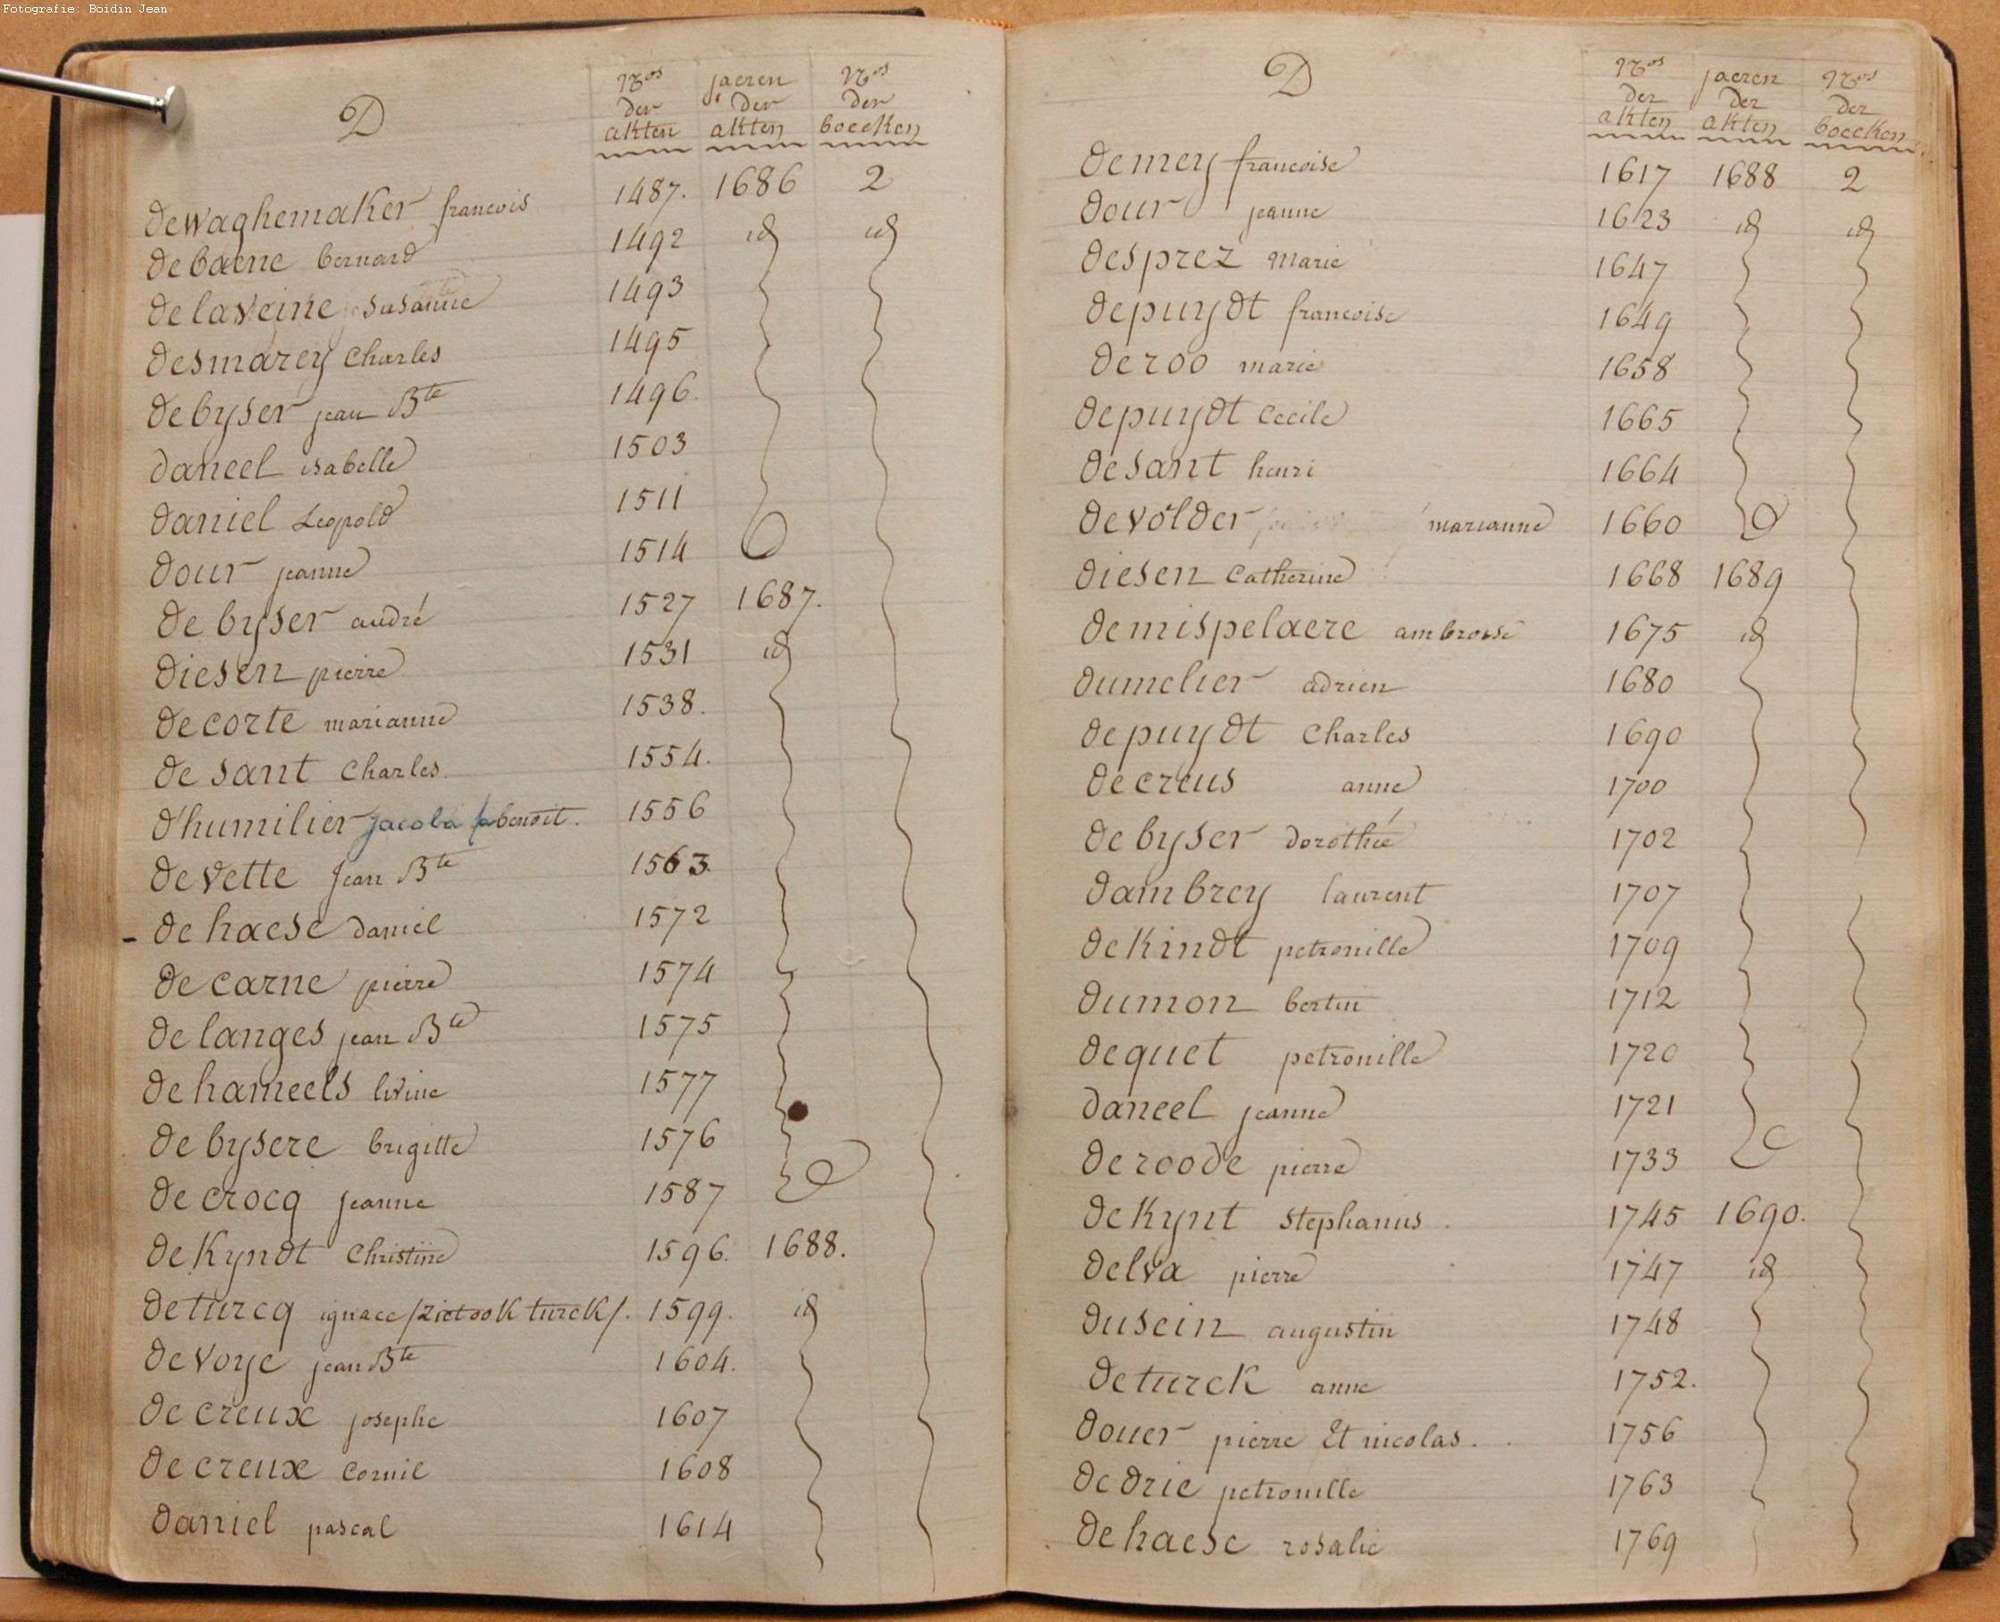 Fotografie: Boidin Jean
D
Nos der akten jaeren der akten Nos der boecken
dewaghemaker francois 1487. 1686 2
de baene bernard 1492 id id
de laveine susanne 1493
desmarey Charles 1495
de byser jean Bte 1496.
daneel isabelle 1503
daniel Leopold 1511
dour jeanne 1514
de byser andré 1527 1687.
diesen pierre 1531 id
de corte marianne 1538.
de sant Charles. 1554.
d'humilier jacoba benoit. 1556
de vette Jean Bte 1563.
- de haese daniel 1572
de carne pierre 1574
de langes jean Bte 1575
de hameels livine 1577
de bysere brigitte 1576
de crocq jeanne 1587
de Kyndt Christine 1596. 1688.
de turcq ignace /ziet ook turck/. 1599. id
de voye jean Bte 1604.
de creux josephe 1607
de creux Cornil 1608
daniel pascal 1614
D
Nos der akten jaeren der akten Nos der boecken
de mey francoise 1617 1688 2
dour jeanne 1623 id id
desprez marie 1647
depuydt francoise 1649
de roo marie 1658
depuydt Cecile 1665
de sant henri 1664
de volder marianne 1660
diesen Catherine 1668 1689
de mispelaere ambroise 1675 id
dumelier adrien 1680
depuydt Charles 1690
de creus anne 1700
de byser dorothée 1702
dambrey laurent 1707
de Kindt petronille 1709
dumon bertin 1712
dequet petronille 1720
daneel jeanne 1721
de roode pierre 1733
de Kynt stephanus. 1745 1690.
delva pierre 1747 id
dusein augustin 1748
de turck anne 1752.
douer pierre Et nicolas. 1756
de drie petronille 1763
de haese rosalie 1769